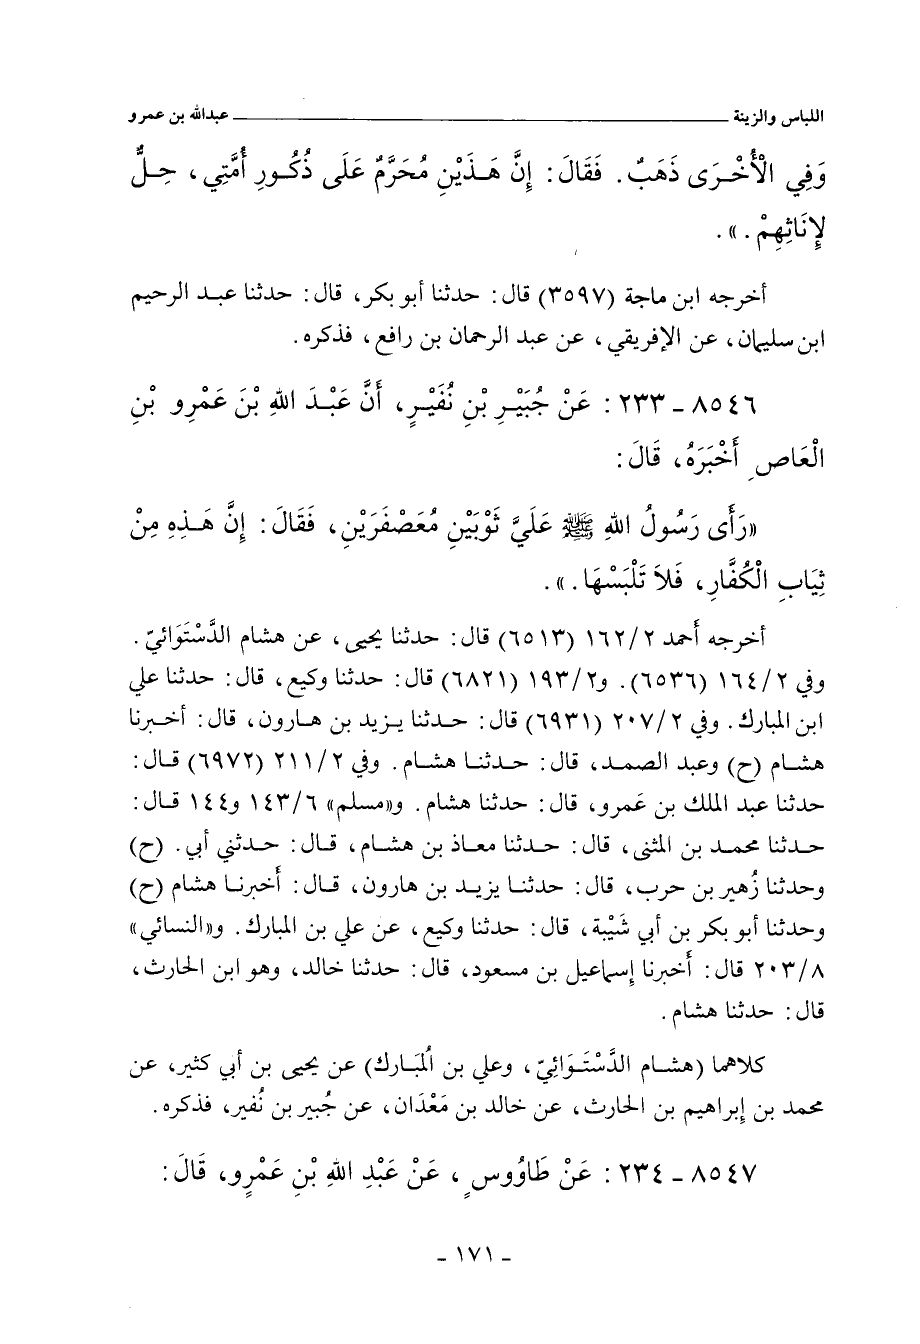 اللباس والزينة ــــــــــــــــــــــــــــــــ عبدالله بن عمرو
وَفِي الْأُخْرَى ذَهَبٌ. فَقَالَ: إِنَّ هَذَيْنِ مُحَرَّمٌ عَلَى ذُكُورِ أُمَّتِي، حِلٌّ
لِإِنَاثِهِمْ.».
أخرجه ابن ماجة (٣٥٩٧) قال: حدثنا أبو بكر، قال: حدثنا عبد الرحيم
ابن سليمان، عن الإفريقي، عن عبد الرحمان بن رافع، فذكره.
٨٥٤٦ - ٢٣٣: عَنْ جُبَيْرِ بْنِ نُفَيْرٍ، أَنَّ عَبْدَ اللهِ بْنَ عَمْرِو بْنِ
الْعَاصِ أَخْبَرَهُ، قَالَ:
«رَأَى رَسُولُ اللهِ ﷺ عَلَيَّ ثَوْبَيْنِ مُعَصْفَرَيْنِ، فَقَالَ: إِنَّ هَذِهِ مِنْ
ثِيَابِ الْكُفَّارِ، فَلاَ تَلْبَسْهَا.».
أخرجه أَحمد ١٦٢/٢ (٦٥١٣) قال: حدثنا يحيى، عن هشام الدَّسْتَوَائيّ.
وفي ١٦٤/٢ (٦٥٣٦). و١٩٣/٢ (٦٨٢١) قال: حدثنا وكيع، قال: حدثنا علي
ابن المبارك. وفي ٢٠٧/٢ (٦٩٣١) قال: حدثنا يزيد بن هارون، قال: أخبرنا
هشام (ح) وعبد الصمد، قال: حدثنا هشام. وفي ٢١١/٢ (٦٩٧٢) قال:
حدثنا عبد الملك بن عَمرو، قال: حدثنا هشام. و«مسلم» ١٤٣/٦ و١٤٤ قال:
حدثنا محمد بن المثنى، قال: حدثنا معاذ بن هشام، قال: حدثني أبي. (ح)
وحدثنا زُهير بن حرب، قال: حدثنا يزيد بن هارون، قال: أَخبرنا هشام (ح)
وحدثنا أبو بكر بن أبي شَيْبة، قال: حدثنا وكيع، عن علي بن المبارك. و«النسائي»
٢٠٣/٨ قال: أَخبرنا إسماعيل بن مسعود، قال: حدثنا خالد، وهو ابن الحارث،
قال: حدثنا هشام.
كلاهما (هشام الدَّسْتَوَائِيّ، وعلي بن الُمَبارك) عن يحيى بن أبي كثير، عن
محمد بن إِبراهيم بن الحارث، عن خالد بن مَعْدَان، عن جُبير بن نُفير، فذكره.
٨٥٤٧ - ٢٣٤: عَنْ طَاوُوسٍ، عَنْ عَبْدِ اللهِ بْنِ عَمْرٍو، قَالَ:
- ١٧١ -